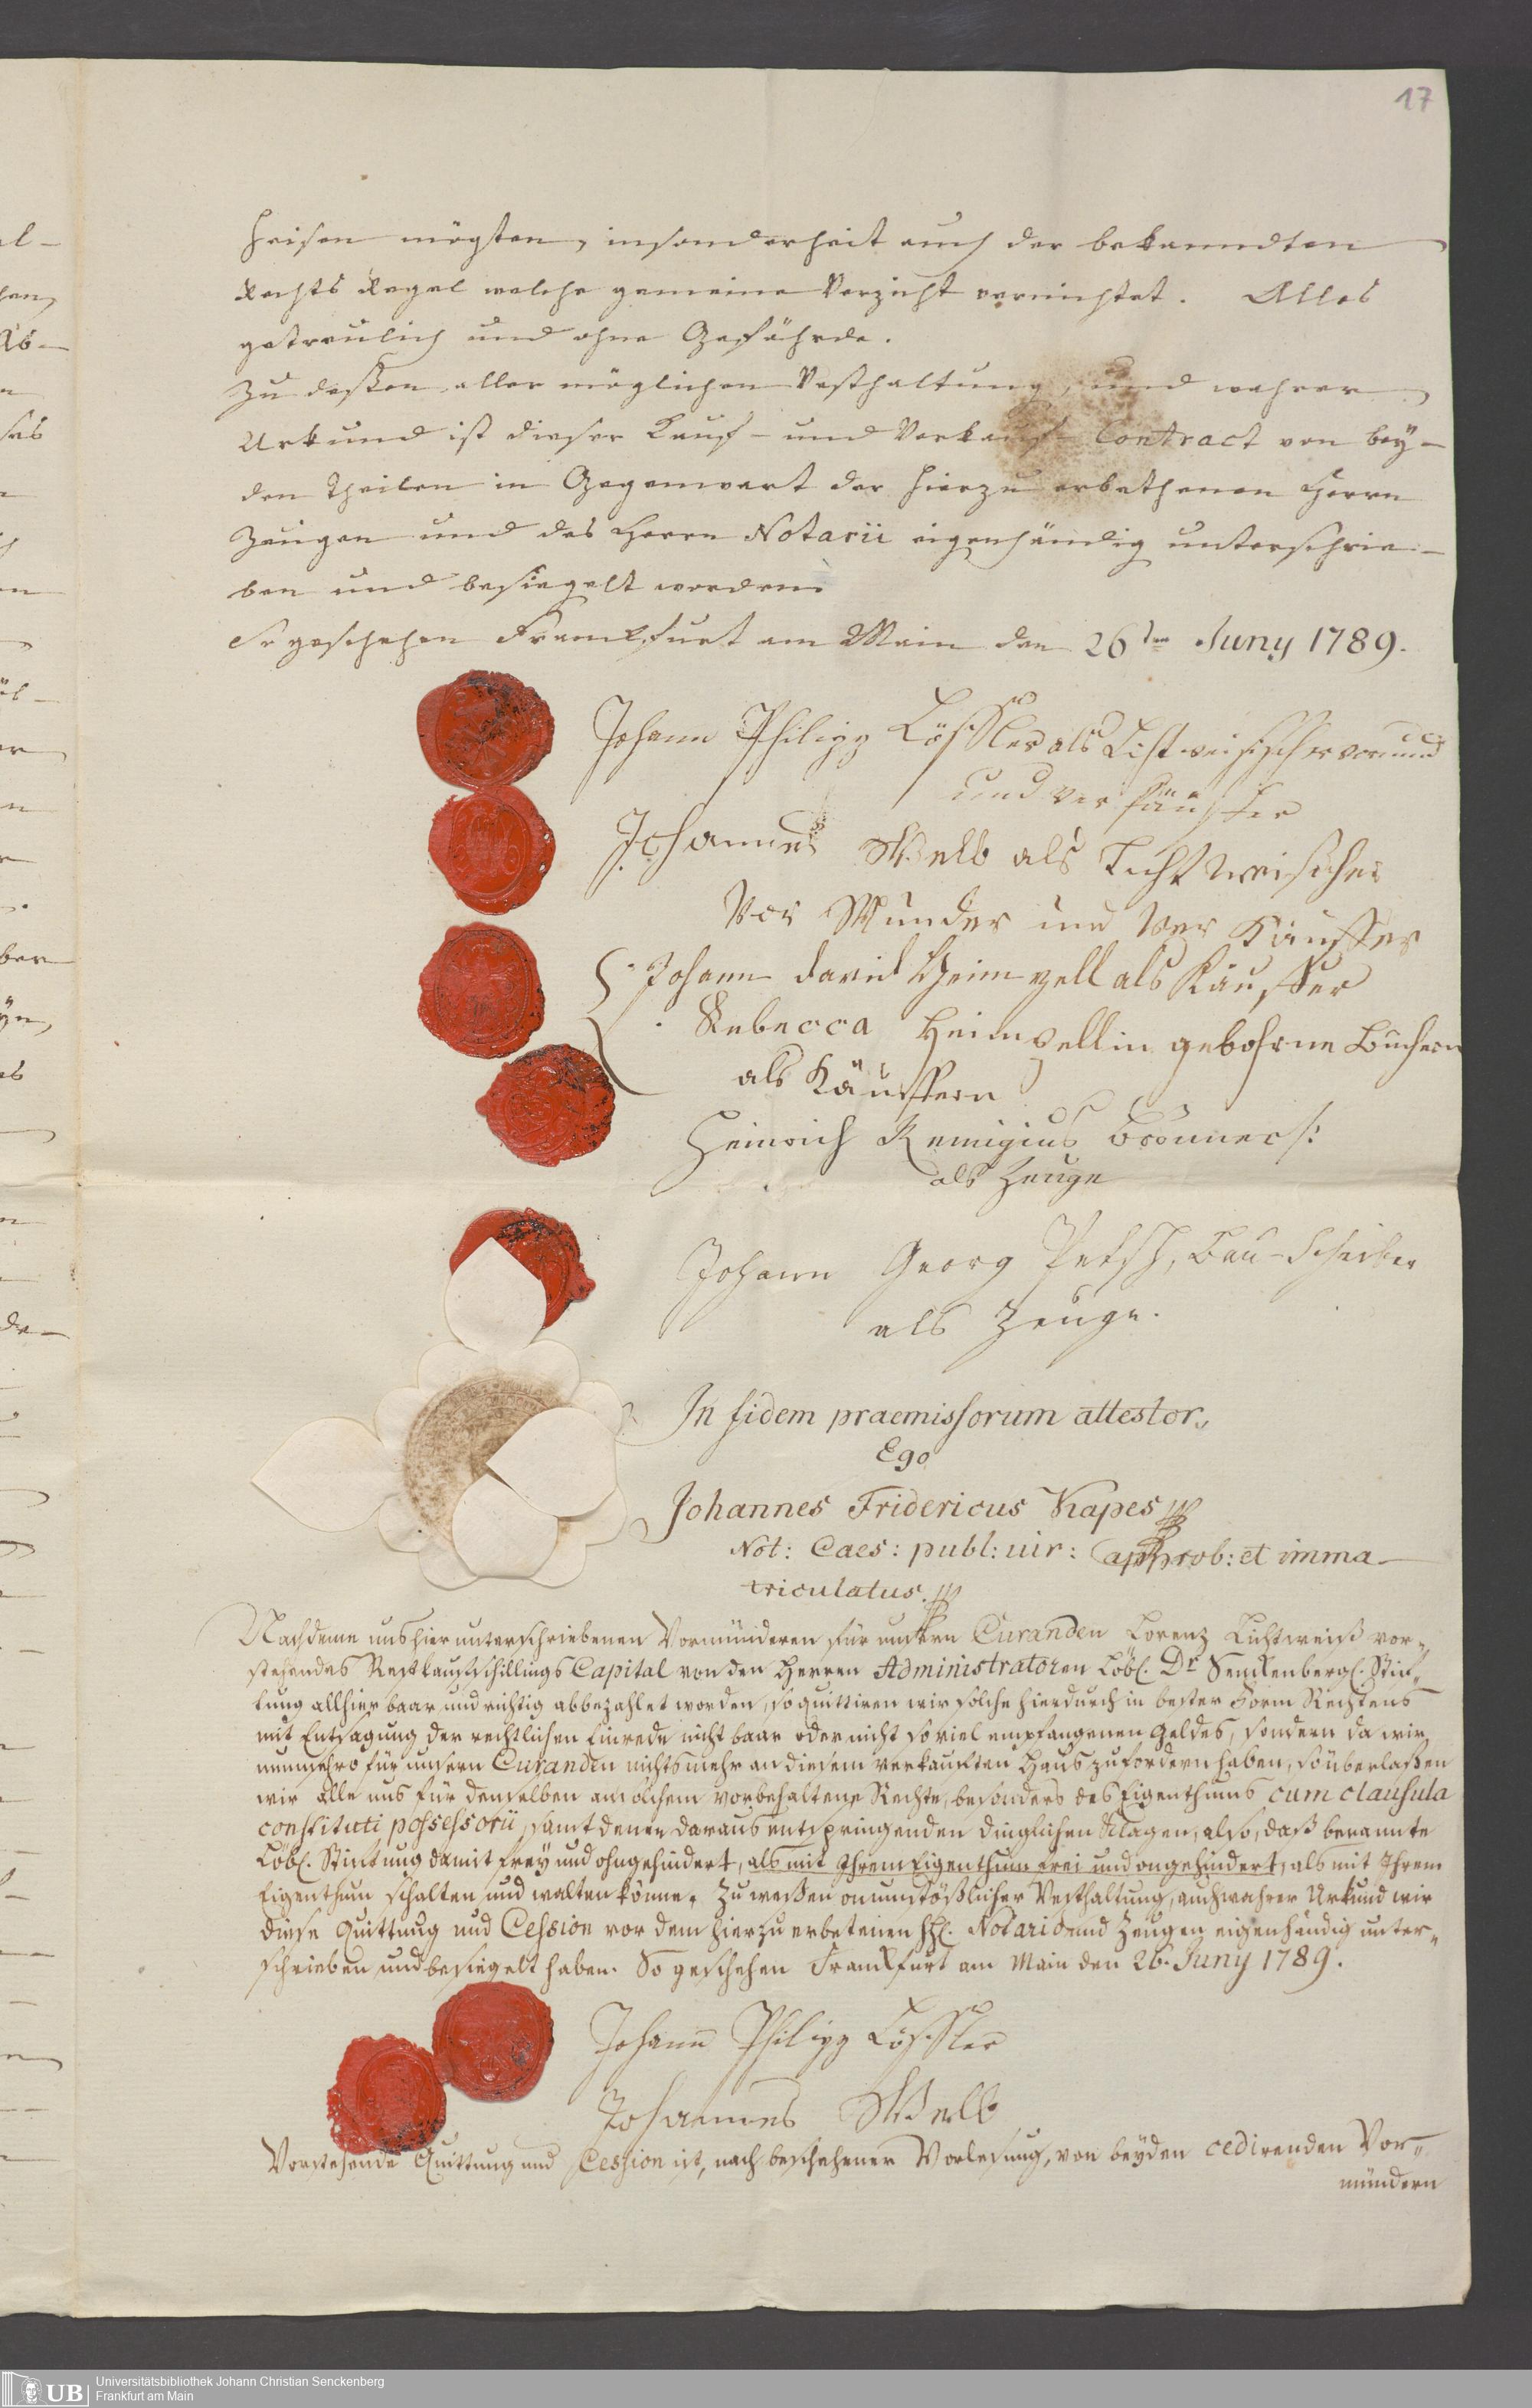 17
heisen mögten, insonderheit auch der bekanndten
Rechts Regel welche gemeine Verzicht vernichtet. Alles
getreulich und ohne Gefährde.
Zu deßen aller möglichen Vesthaltung, und wahrer
Urkund ist dieser Kauf- und Verkauf- Contract von bey-
den Theilen in Gegenwart der hierzu erbethenen Herrn
Zeugen und des Herrn Notarii eigenhändig unterschrie-
ben und besiegelt worden.
So geschehen Franckfurt am Main den 26ten Juny 1789.
Johann Philipp Löffler als Lichtweisischer vormund
und Verkäuffer
Johannes Welb als Lichtweisicher
Vor Munder und Ver Käuffer
Johann David Heimzell als Käuffer
Rebecca Heimzellin gebohrne Buchern
als Käuffern
Heinrich Remigius Brönner
als Zeuge
Johann Georg Petsch, Bau-Schreiber
als Zeuge.
In fidem praemissorum attestor,
Ego
Johannes Fridericus Kapes
Not: Caes: publ: iur: approb: et imma-
triculatus.
Nachdeme uns hier unterschriebenen Vormünderen für unsern Curanden Lorenz Lichtweiß vor-
stehendes Restkaufschillings Capital von den Herren Administratoren Löbl. Dr Senckenbergl. Stif-
tung allhier baar und richtig abbezahlet worden, so quittiren wir solche hierdurch in bester Form Rechtens
mit Entsagung der rechtlichen Einrede nicht baar oder nicht so viel empfangenen Geldes, sondern da wir
nunmehro für unsern Curanden nichts mehr an diesem verkauften Haus zu fordern haben, so überlaßen
wir alle uns für denselben an solchem vorbehaltene Rechte, besonders des Eigenthums cum clausula
constituti possessorii, samt denen daraus entspringenden dinglichen Klagen, also, daß benannte
Löbl. Stiftung damit frey und ohngehindert, als mit Ihrem Eigenthum frei und ongehindert, als mit Ihrem
Eigenthum schalten und walten könne. Zu weßen onumstößlicher Vesthaltung, auch wahrer Urkund wir
diese Quittung und Cession vor dem hierzu erbetenen Hl. Notario und Zeugen eigenhändig unter-
schrieben und besiegelt haben. So geschehen Franckfurt am Main den 26. Juny 1789.
Johann Philipp Löffler
Johannes Welb
Vorstehende Quittung und Cession ist, nach beschehener Vorlesung, von beyden cedirenden Vor-
mündern
UB Universitätsbibliothek Johann Christian Senckenberg
Frankfurt am Main